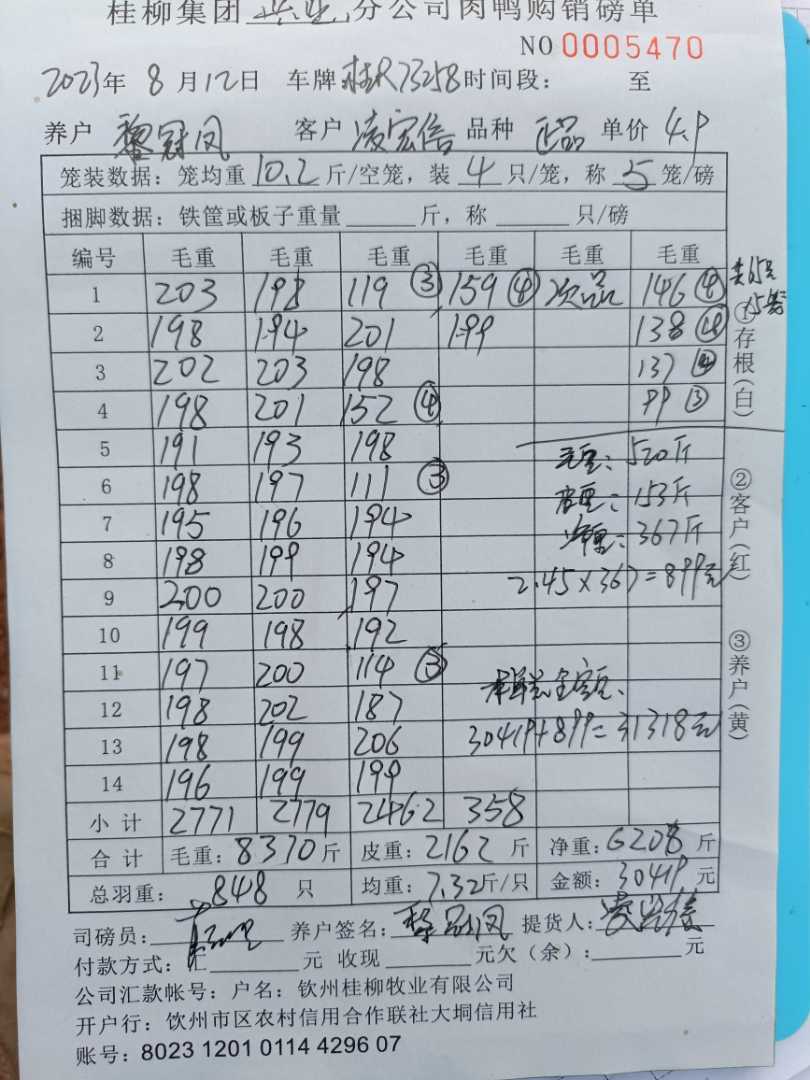 桂柳集团 分公司肉鸭购销磅单
NO 0005470
2023年 8 月 12日 车牌:桂R73258 时间段: 至
养户 黎冠凤 客户 凌宏信 品种 正品 单价 4.9
笼装数据: 笼均重 10.2 斤/空笼, 装 4 只/笼, 称 5 笼/磅
捆脚数据: 铁筐或板子重量 斤, 称 只/磅
编号 毛重 毛重 毛重 毛重 毛重 毛重
1 203 198 119 ③ 159 ④ 次品 146 ④
2 198 194 201 199 138 ④
3 202 203 198 137 ④
4 198 201 152 ④ 99 ③
5 191 193 198
6 198 197 111 ③
7 195 196 194
8 198 199 194
9 200 200 197
10 199 198 192
11 197 200 114 ③
12 198 202 187
13 198 199 206
14 196 199 199
毛重: 520斤
皮重: 153斤
净重: 367斤
2.45×367=899元
30419+899=31318元
小计 2771 2779 2462 358
合计 毛重: 8370 斤 皮重: 2162 斤 净重: 6208 斤
总羽重: 848 只 均重: 7.32斤/只 金额: 30419 元
①存根(白)
②客户(红)
③养户(黄)
司磅员: 养户签名: 黎冠凤 提货人:
付款方式: 汇 元 收现 元欠(余): 元
公司汇款帐号: 户名: 钦州桂柳牧业有限公司
开户行: 钦州市区农村信用合作联社大垌信用社
账号: 8023 1201 0114 4296 07